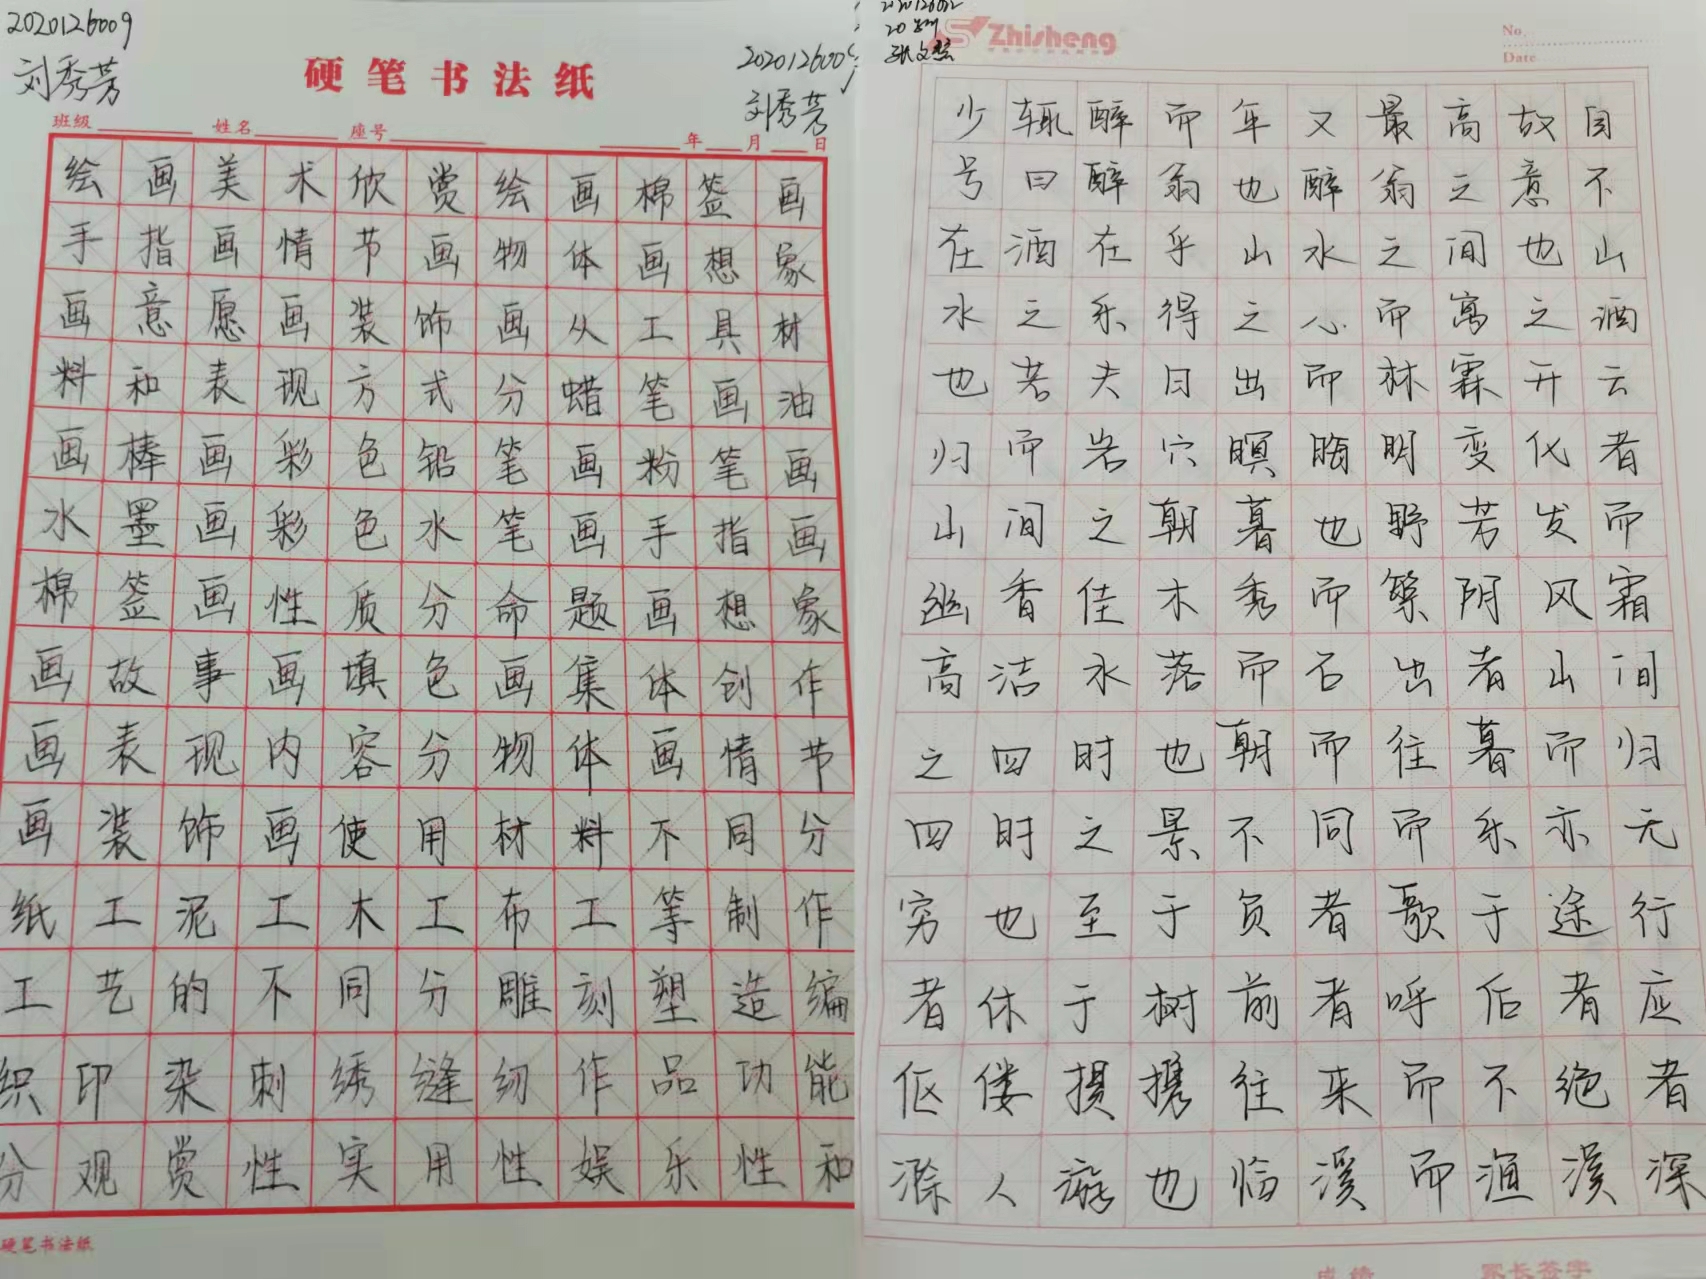 2020126009
刘秀芳
硬笔书法纸
刘秀芳
班级 姓名 座号 年 月 日
绘画美术欣赏绘画棉签画
手指画情节画物体画想象
画意愿画装饰画从工具材
料和表现方式分蜡笔画油
画棒画彩色铅笔画粉笔画
水墨画彩色水笔画手指画
棉签画性质分命题画想象
画故事画填色画集体创作
画表现内容分物体画情节
画装饰画使用材料不同分
纸工泥工木工布工等制作
工艺的不同分雕刻塑造编
织印染刺绣缝纫作品功能
分观赏性实用性娱乐性和
硬笔书法纸
Zhisheng
No.
Date
少辄醉而年又最高故自
号曰醉翁也醉翁之意不
在酒在乎山水之间也山
水之乐得之心而寓之酒
也若夫日出而林霏开云
归而岩穴暝晦明变化者
山间之朝暮也野芳发而
幽香佳木秀而繁阴风霜
高洁水落而石出者山间
之四时也朝而往暮而归
四时之景不同而乐亦无
穷也至于负者歌于途行
者休于树前者呼后者应
伛偻提携往来而不绝者
滁人游也临溪而渔溪深
成绩 家长签字